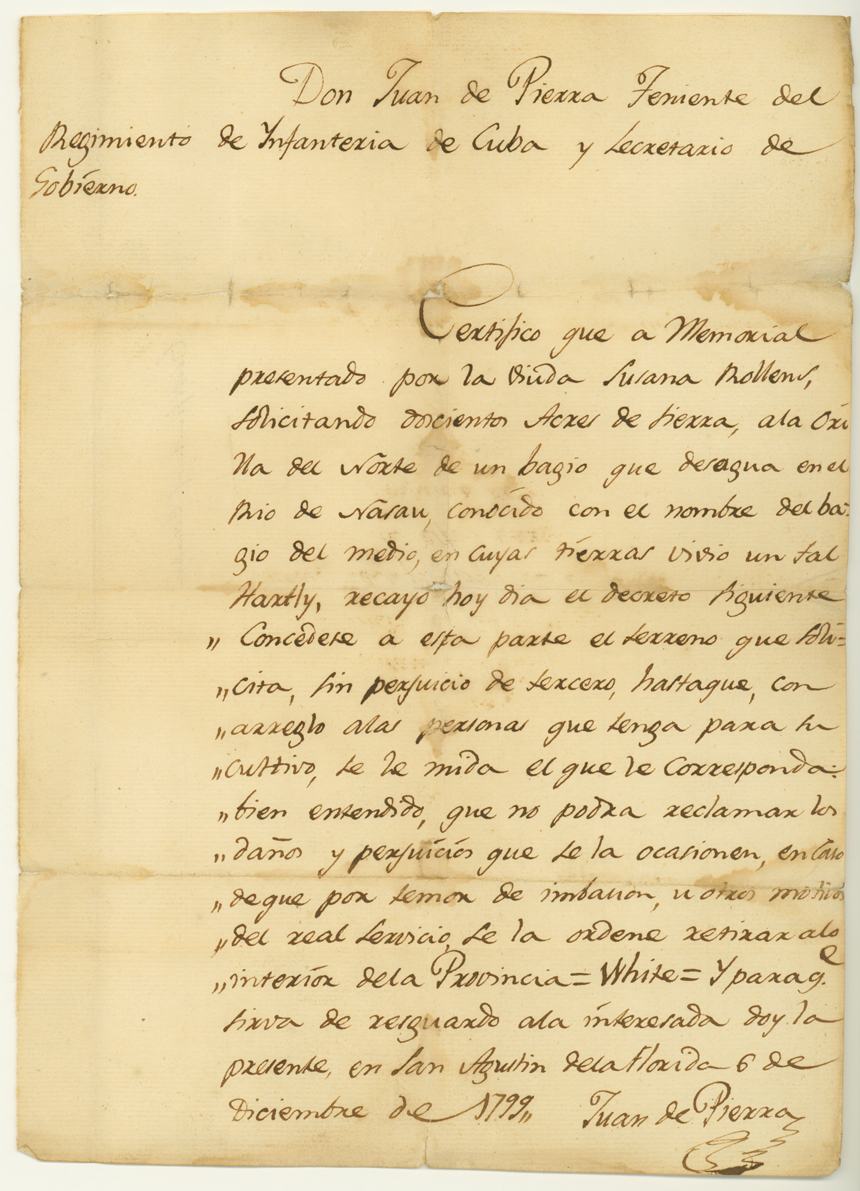 Don Juan de Pierra Teniente del
Regimiento de Ynfanteria de Cuba y Secretario de
Gobierno.
Certifico que a Memorial
presentado por la Viuda Susana Rollens,
solicitando doscientos Acres de tierra, ala Ori
lla del Norte de un bagio que desagua en el
Rio de Nasau, conocido con el nombre del ba-
gio del medio, en cuyas tierras vivio un tal
Hartly, recayo hoy dia el decreto siguiente
„ Concedese a esta parte el terreno que soli=
„cita, sin perjuicio de tercero, hastaque, con
„arreglo alas personas que tenga para su
„cultivo, se le mida el que le Corresponda:
„bien entendido, que no podra reclamar los
„daños y perjuicios que se la ocasionen, en caso
„deque por temor de imbacion, u otros motivos
„del real servicio, se la ordene retirar alo
„interior dela Provincia = White = Y para qe
sirva de resguardo ala interesada doy la
presente, en San Agustin dela Florida 6 de
Diciembre de 1799„ Juan de Pierra